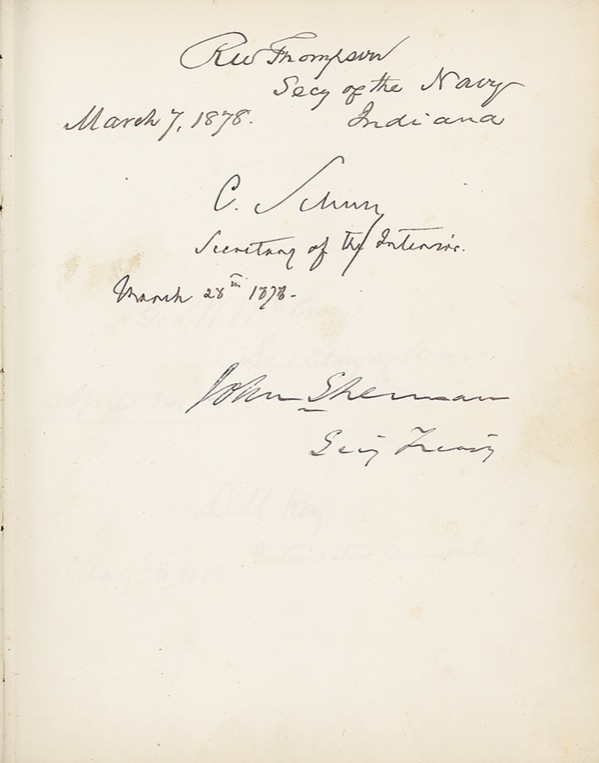 RW Thompson
Secy of the Navy
March 7, 1878. Indiana
C. Schurz
Secretary of the Interior.
March 28th 1878.
John Sherman
Secy Treasy
D. M. Key